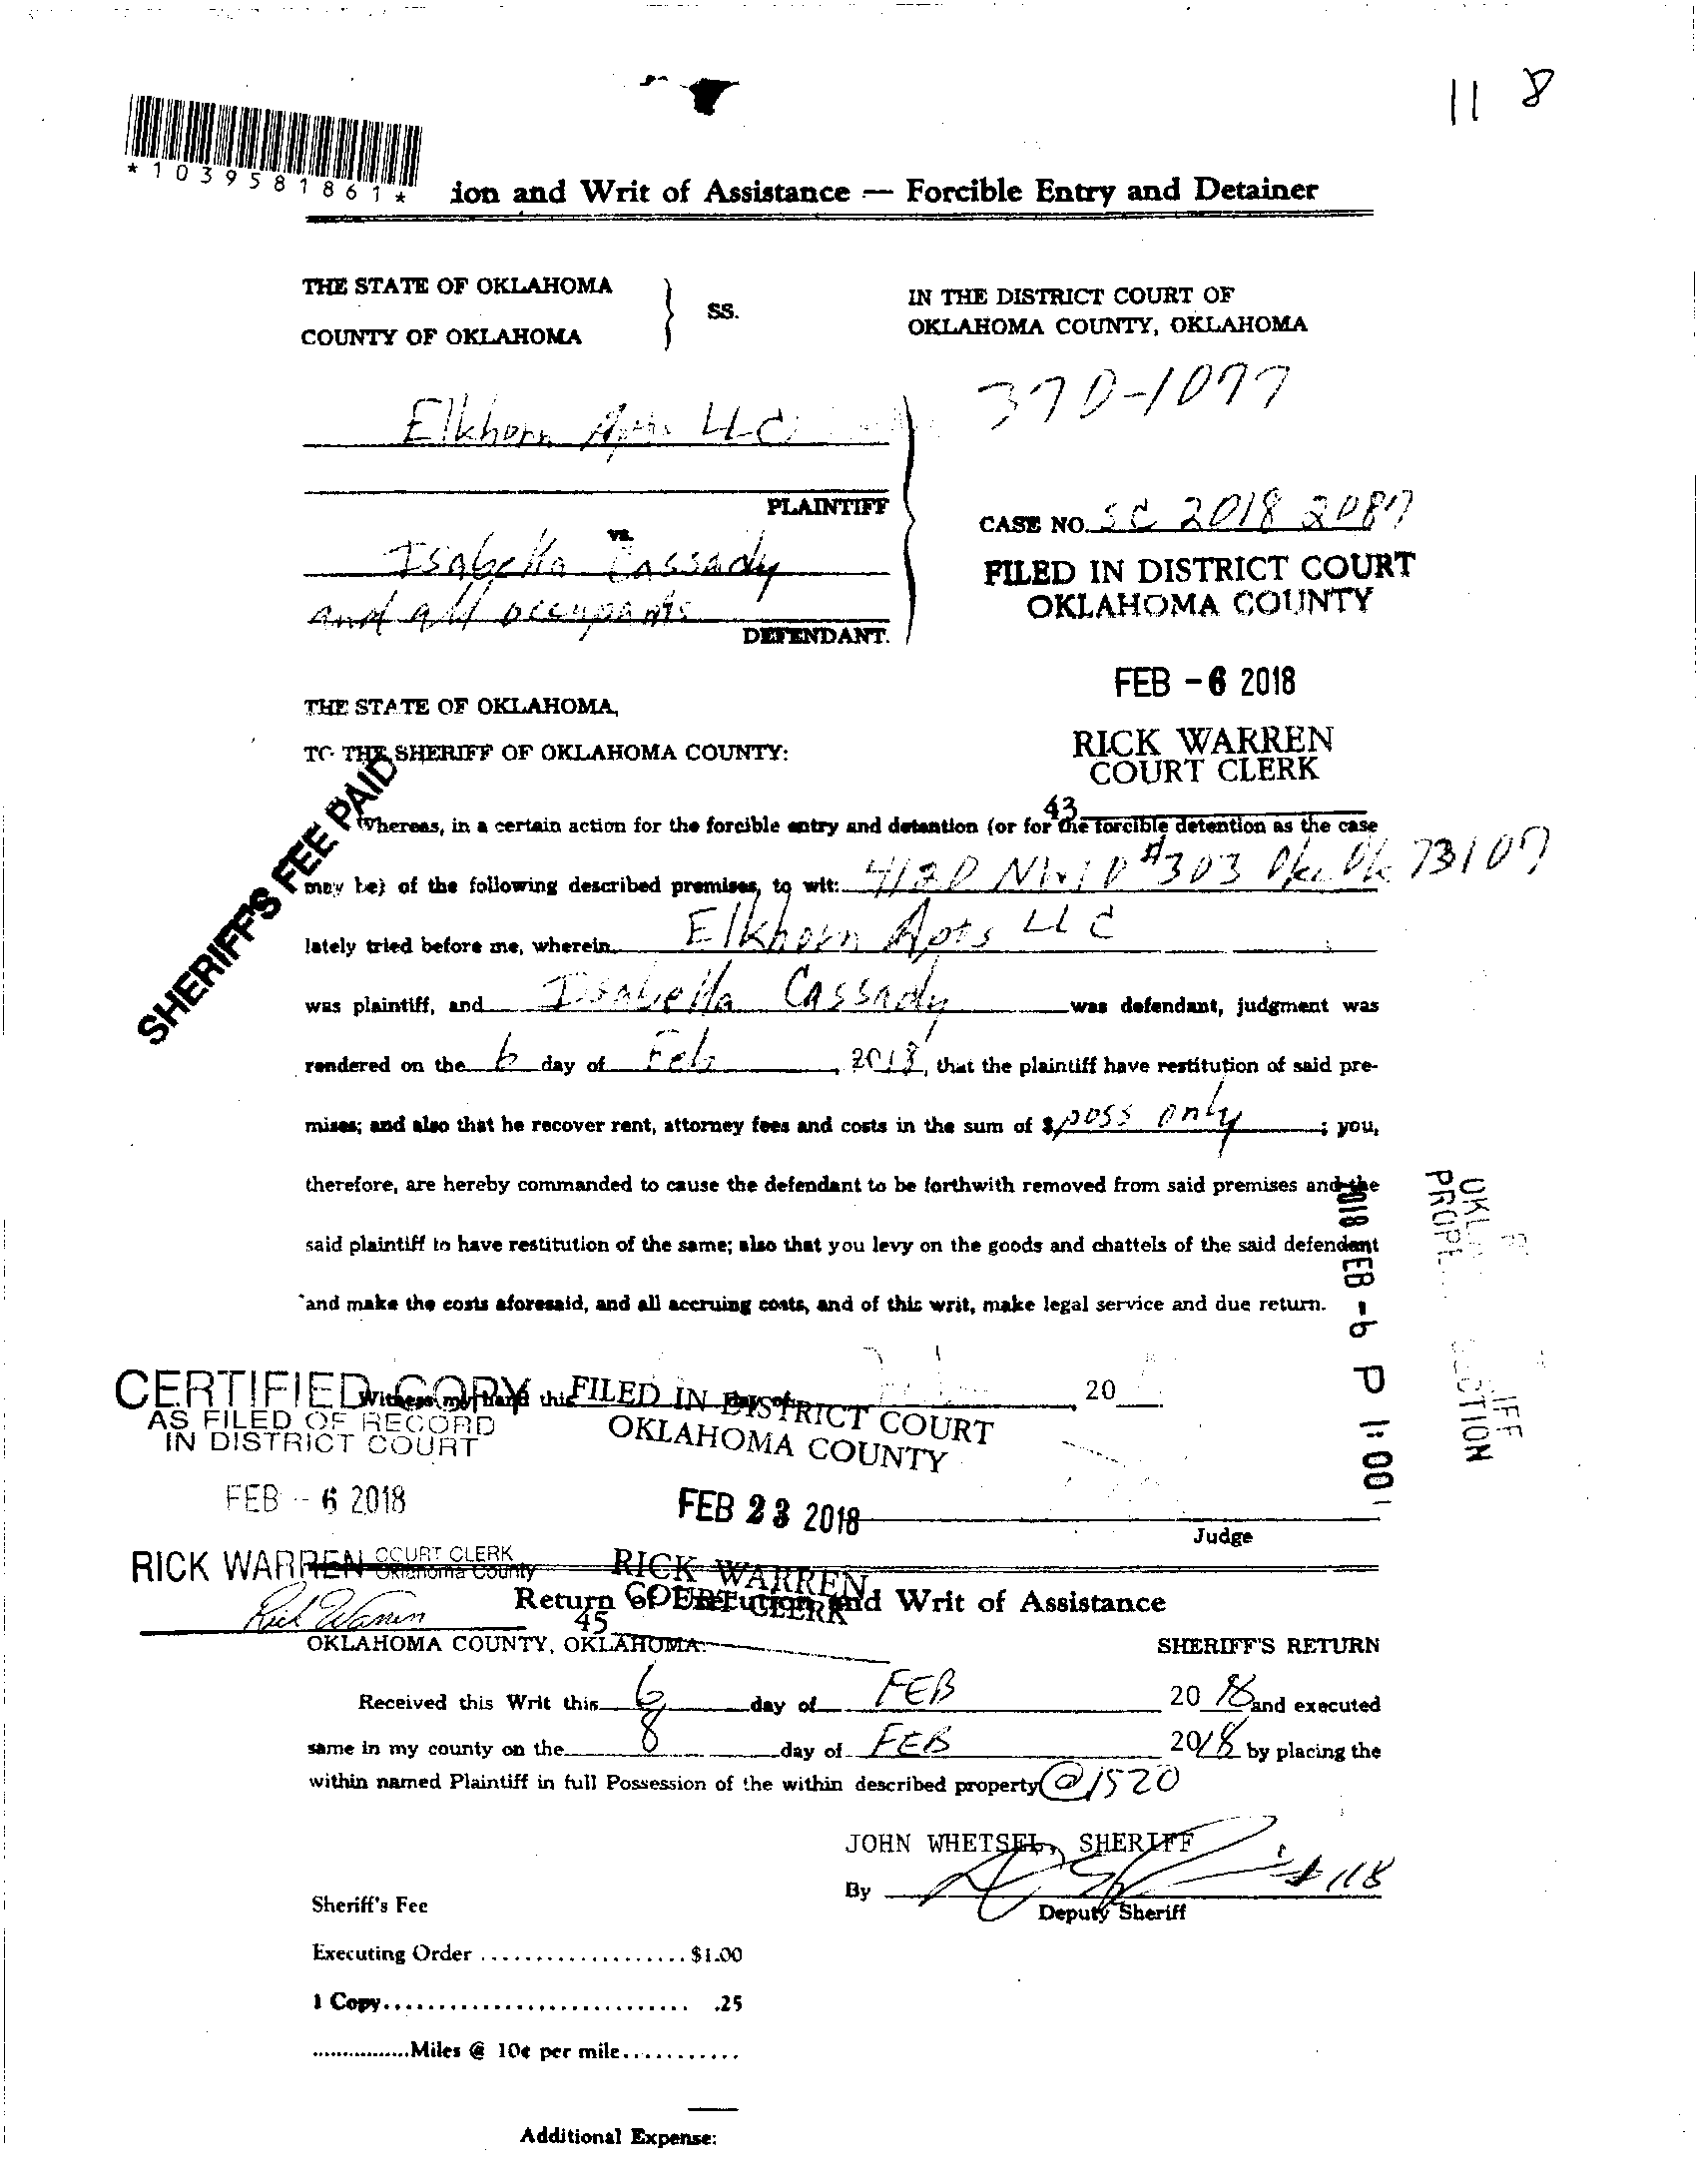 11 8
*1039581861*
ion and Writ of Assistance — Forcible Entry and Detainer
THE STATE OF OKLAHOMA
COUNTY OF OKLAHOMA
SS.
IN THE DISTRICT COURT OF
OKLAHOMA COUNTY, OKLAHOMA
370-1077
Elkhorn Apts LLC
PLAINTIFF
vs.
Isabella Cassady
and all occupants
DEFENDANT.
CASE NO. SC 2018 2087
FILED IN DISTRICT COURT
OKLAHOMA COUNTY
FEB -6 2018
RICK WARREN
COURT CLERK
43
THE STATE OF OKLAHOMA,
TO THE SHERIFF OF OKLAHOMA COUNTY:
SHERIFF'S FEE PAID
Whereas, in a certain action for the forcible entry and detention (or for the forcible detention as the case
may be) of the following described premises, to wit: 4120 NW 10 #303 Okc Ok 73107
lately tried before me, wherein Elkhorn Apts LLC
was plaintiff, and Isabella Cassady was defendant, judgment was
rendered on the 6 day of Feb, 2018, that the plaintiff have restitution of said pre-
mises; and also that he recover rent, attorney fees and costs in the sum of $ poss only ; you,
therefore, are hereby commanded to cause the defendant to be forthwith removed from said premises and the
said plaintiff to have restitution of the same; also that you levy on the goods and chattels of the said defendant
and make the costs aforesaid, and all accruing costs, and of this writ, make legal service and due return.
2018 FEB -6 P 1:00
Witness my hand this day of , 20
CERTIFIED COPY
AS FILED OF RECORD
IN DISTRICT COURT
FEB -6 2018
RICK WARREN COURT CLERK
Oklahoma County
Rick Warren
FILED IN DISTRICT COURT
OKLAHOMA COUNTY
FEB 23 2018
RICK WARREN
COURT CLERK
45
Judge
Return of Execution and Writ of Assistance
OKLAHOMA COUNTY, OKLAHOMA.
SHERIFF'S RETURN
Received this Writ this 6 day of FEB 2018 and executed
same in my county on the 8 day of FEB 2018 by placing the
within named Plaintiff in full Possession of the within described property @1520
JOHN WHETSEL, SHERIFF
By
118
Deputy Sheriff
Sheriff's Fee
Executing Order .................... $1.00
1 Copy............................. .25
................Miles @ 10¢ per mile............
Additional Expense: